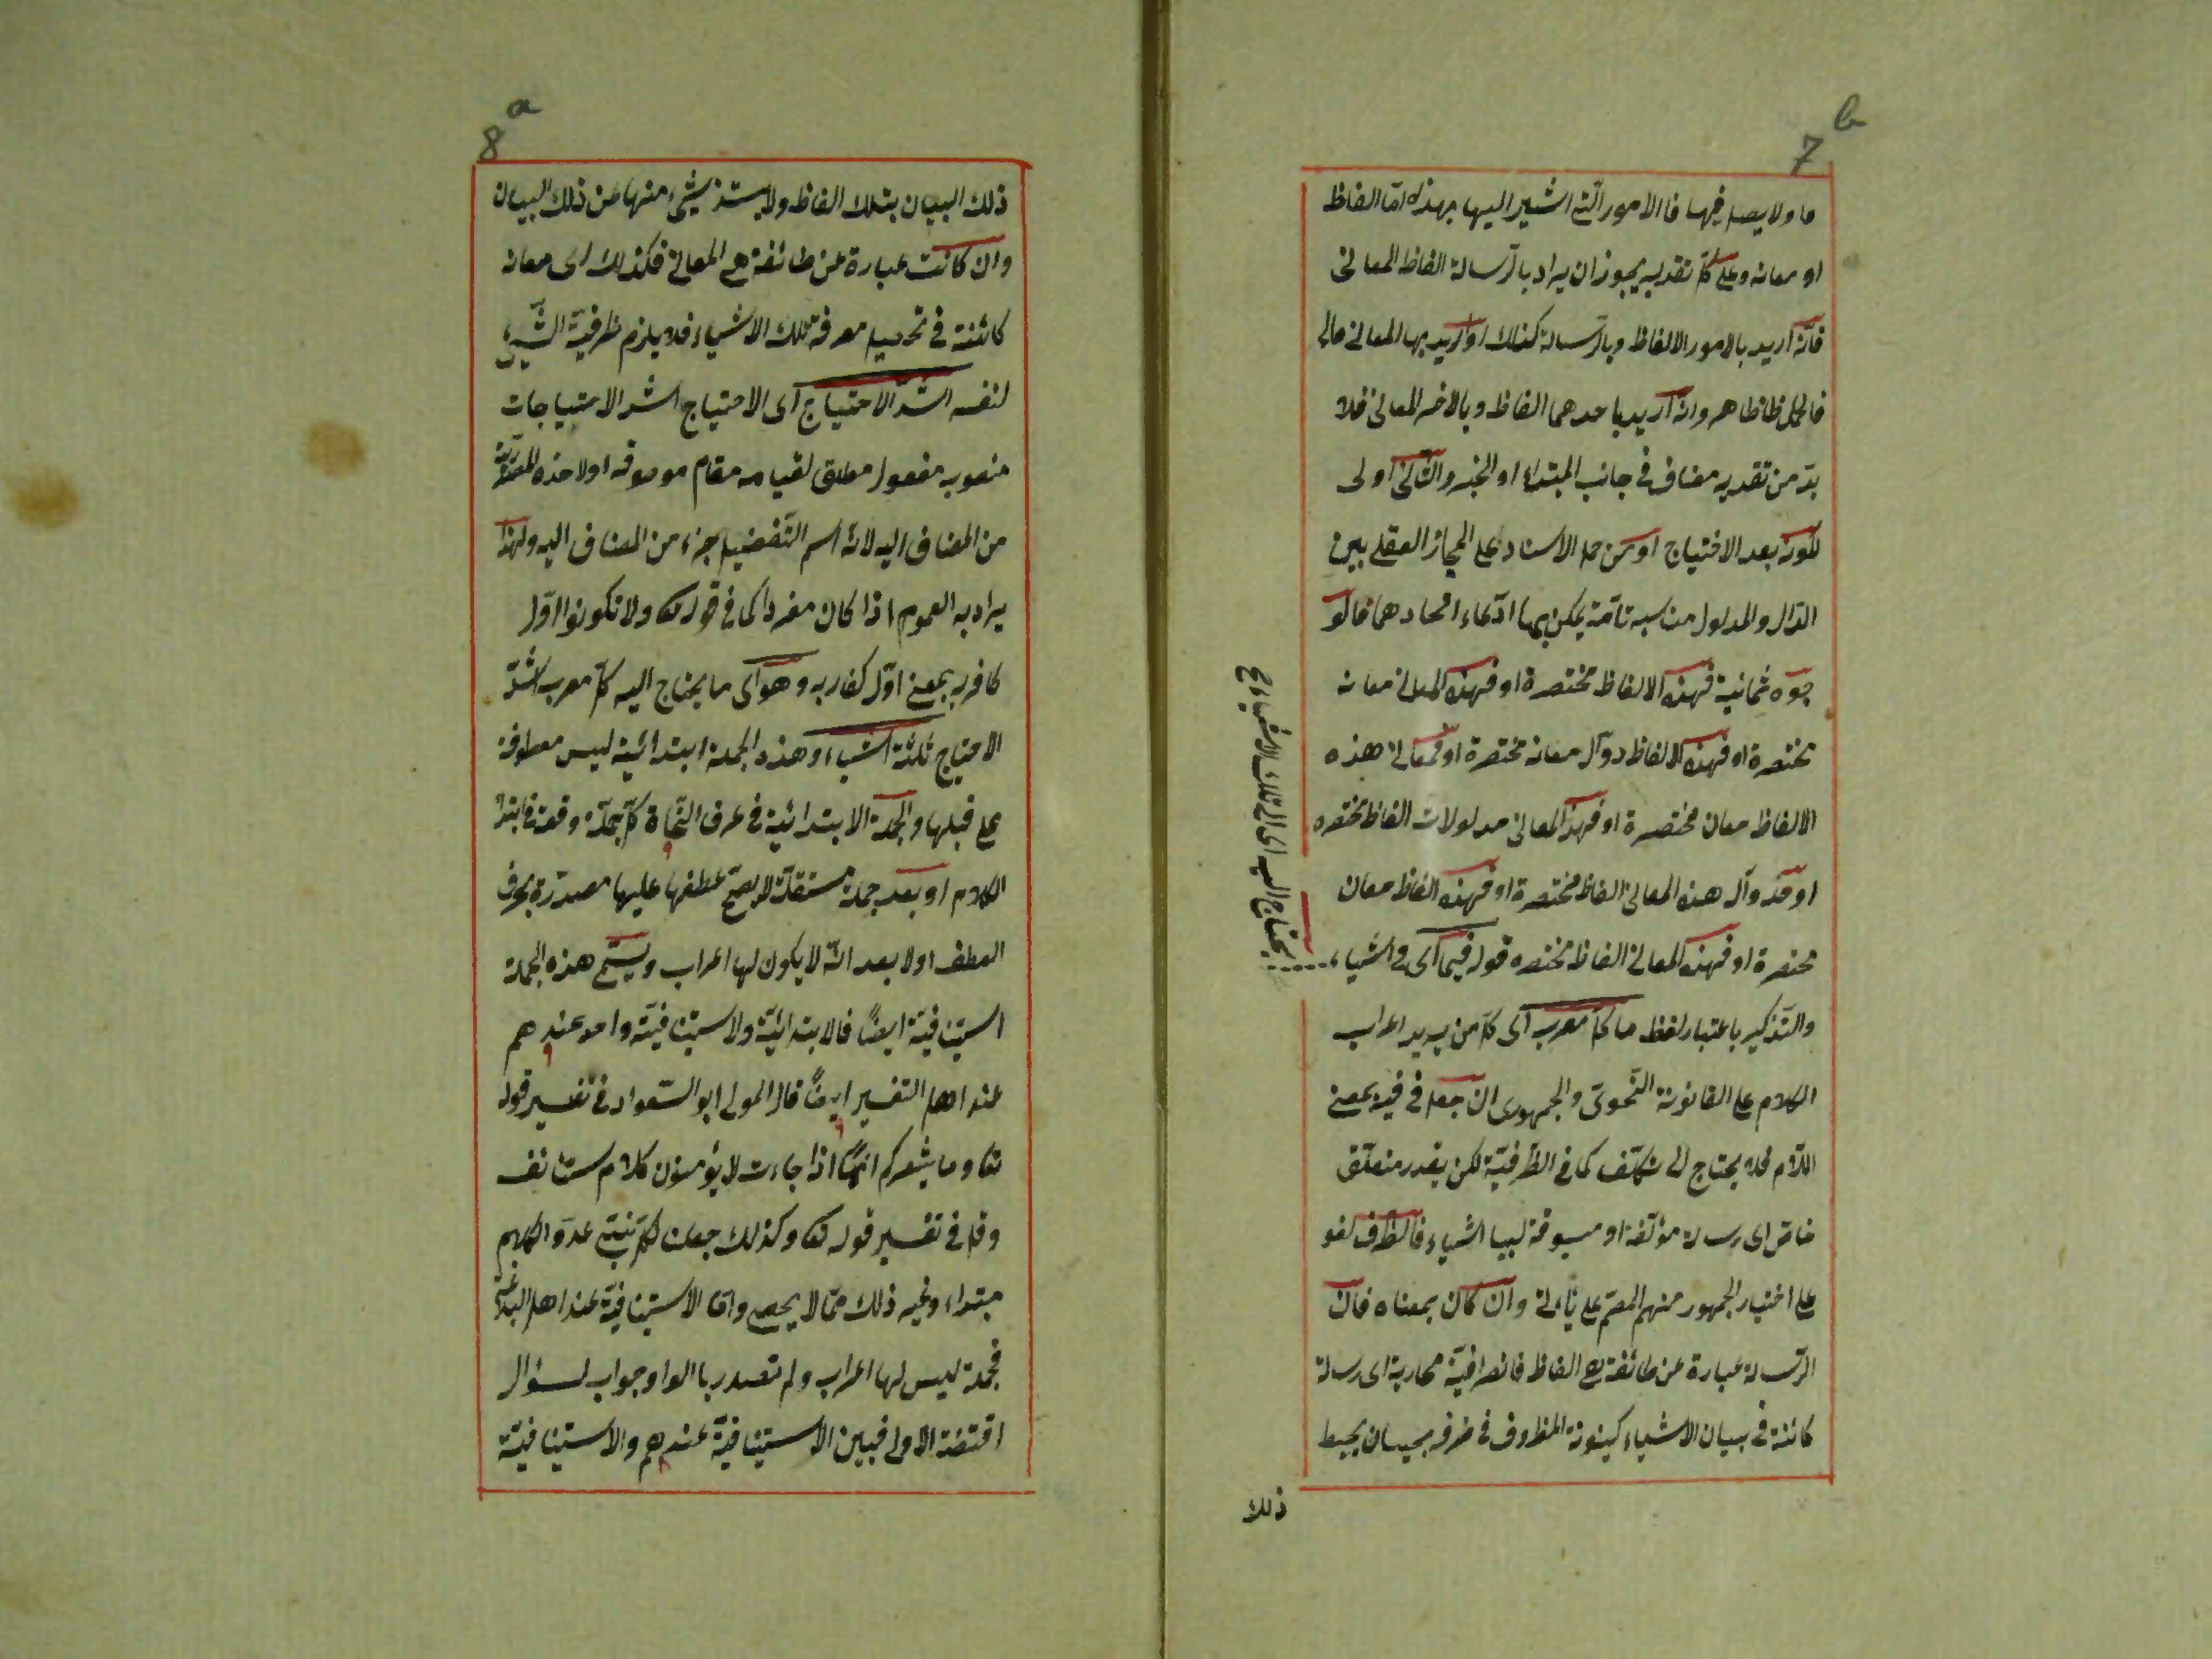 7 b
ما ولا يصل فيها فالامور التى اشير اليها بهذه اما الفاظ
او معان وعلى كل تقدير يجوز ان يراد بالرسالة الفاظ المعانى
فان اريد بالامور الالفاظ وبالرسالة كذلك او اريد بها المعانى
فالحمل ظاهر وان اريد باحدهما الفاظ وبالاخر المعانى فلا
بد من تقدير مضاف فى جانب المبتداء او الخبر والثانى اولى
لكونه بعد الاحتياج او من حمل الاسناد على المجاز العقلى بين
الدال والمدلول مناسبة تامة يمكن بها ادعاء اتحادهما فالو
جوه ثمانية فهذه الالفاظ مختصرة او فهذه المعانى معان
مختصرة او فهذه الالفاظ دوال معان مختصرة او فمعانى هذه
الالفاظ معان مختصرة او فهذه المعانى مدلولات الفاظ مختصره
او فدوال هذه المعانى الفاظ مختصرة او فهذه الفاظ معان
مختصرة او فهذه المعانى الفاظ مختصره قوله فيما اى فى اشياء
يحتاج اليه اى الى تلك الاشياء
والتذكير باعتبار لفظ ما كل معرب اى كل من يريد اعراب
الكلام على القانون النحوى والجمهورى ان جعل فى فيه بمعنى
اللام فلا يحتاج الى تكلف كما فى الظرفية لكن يقدر متعلق
خاص اى رسالة مؤلفة او مسوقة لبيا اشياء فالظرف لغو
على اختيار الجمهور منهم المصم على وان كان بمعناه فان
الرسالة عبارة عن طائفة هى الفاظ فالظرفية مجازية اى رسالة
كائنة فى بيان الاشياء كينونة المظروف فى ظرفه بحيث ان يحيط
ذلك
8 a
ذلك البيان بتلك الفاظ ولا يشذ شيئ منها عن ذلك البيان
وان كانت عبارة عن طائفة هى المعانى فكذلك اى معان
كائنة فى تحصيل معرفة تلك الاشياء فلا يلزم ظرفية الشيئ
لنفسه اشد الاحتياج اى الاحتياج اشد الاحتياجات
منصوب مفعول مطلق لقيامه مقام موصوفه اولاخذه المصدرية
من المضاف اليه لان اسم التفضيل جزء من المضاف اليه ولهذا
يراد به العموم اذا كان مفردا كما فى قوله تعا ولا تكونوا اول
كافر به بمعنى اول كفار به وهو اى ما يحتاج اليه كل معرب اشد
الاحتياج ثلثة اشياء وهذه الجملة ابتدائية ليس معطوفة
على قبلها والجملة الابتدائية فى عرف النحاة كل جملة وقعت فى ابتداء
الكلام او بعد جملة مستقلة لا يصح عطفها عليها مصدرة بحرف
العطف اولا بعد ان لا يكون لها اعراب ويسمى هذه الجملة
استينافية ايضا فالابتدائية والاستينافية واحد عندهم
عند اهل التفسير ايضا قال المولى ابو السعود فى تفسير قوله
تعا وما يشعركم انها اذا جاءت لا يؤمنون كلام مستانف
وقال فى تفسير قوله تعا وكذلك جعلنا لكل نبى عدوا كلام
مبتداء وغير ذلك مما لا يحصى واما الاستينافية عند اهل البلاغة
فجملة ليس لها اعراب ولم تصدر بالواو جواب لسؤال
اقتضته الاولى فبين الاستينافية عندهم والاستينافية